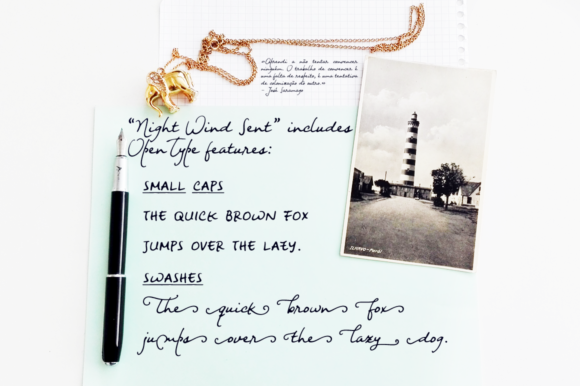 «Aprendi a não tentar convencer
ninguém. O trabalho de convencer é
uma falta de respeito, é uma tentativa
de colonização do outro.»
- José Saramago
“Night Wind Sent” includes
OpenType features:
SMALL CAPS
THE QUICK BROWN FOX
JUMPS OVER THE LAZY.
SWASHES
The quick brown fox
jumps over the lazy dog.